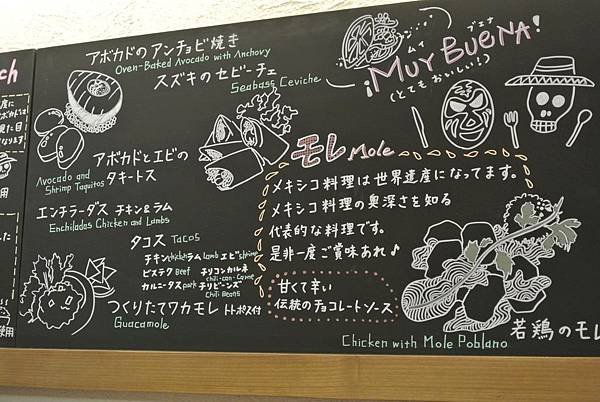 ch
アボカドの アンチョビ焼き
Oven-Baked Avocado with Anchovy
スズキのセビーチェ
Seabass Ceviche
アボカドとエビの
タキートス
Avocado and
Shrimp Taquitos
エンチラーダス チキン&ラム
Enchiladas Chicken and Lambs
タコス Tacos
チキンchickenラムlambエビshrimp
ビステクBeef チリコンカルネ
chili-con-Carne
カルニータスpork チリビーンズ
Chili Beans
つくりたてワカモレ トトポス付
Guacamole
ムイ ブエナ
¡MUY BUENA!
(とてもおいしい!)
モレ Mole
メキシコ料理は世界遺産になってます。
メキシコ料理の奥深さを知る
代表的な料理です。
是非一度ご賞味あれ♪
甘くて辛い
伝統のチョコレートソース
若鶏のモレ
Chicken with Mole Poblano